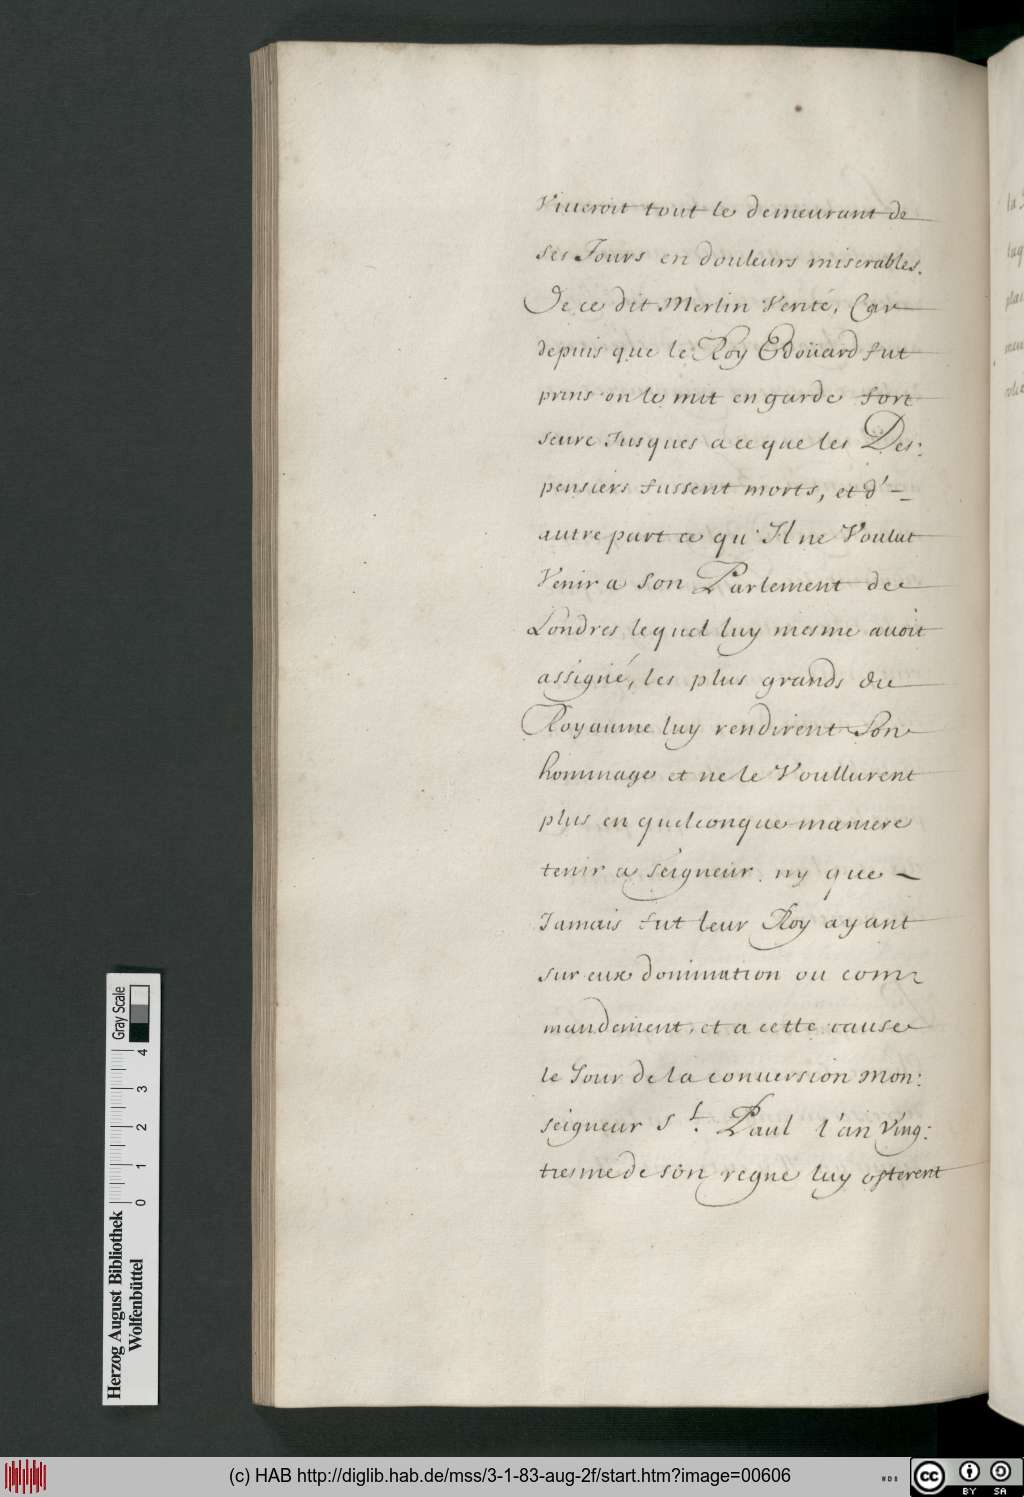 Viueroit tout le demeurant de
ses Jours en douleurs miserables.
De ce dit Merlin Verité, Car
depuis que le Roy Edoüard fut
prins on le mit en garde fort
seure Jusques a ce que les Des:
pensiers fussent morts, et d'-
autre part ce qu'Il ne Voulut
Venir a son Parlement de
Londres lequel luy mesme auoit
assigné, les plus grands du
Royaume luy rendirent son
hommage et ne le Voullurent
plus en quelconque maniere
tenir a seigneur. ny que -
Jamais fut leur Roy ayant
sur eux domination ou com-
mandement, et a cette cause
le Jour de la conuersion Mon:
seigneur St. Paul l'an Ving:
tiesme de son regne luy osterent
la
laq
plus
Gray Scale
4 3 2 1 0
Herzog August Bibliothek
Wolfenbüttel
(c) HAB http://diglib.hab.de/mss/3-1-83-aug-2f/start.htm?image=00606
WDB
cc BY SA